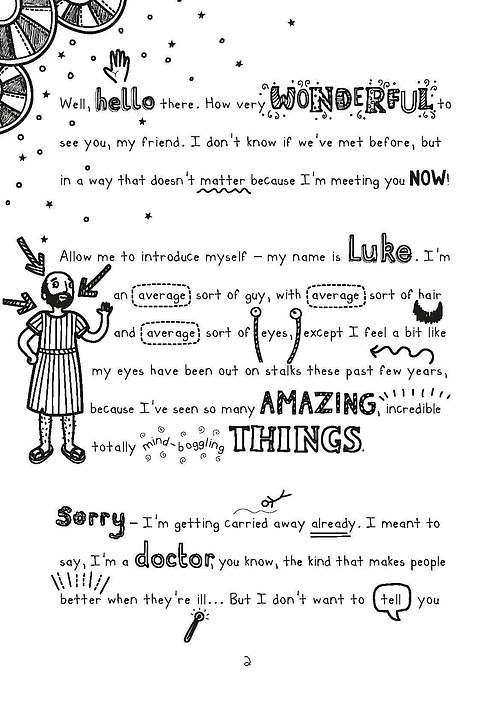 Well, hello there. How very WONDERFUL to
see you, my friend. I don't know if we've met before, but
in a way that doesn't matter because I'm meeting you NOW!
Allow me to introduce myself – my name is Luke. I'm
an average sort of guy, with average sort of hair
and average sort of eyes, except I feel a bit like
my eyes have been out on stalks these past few years,
because I've seen so many AMAZING, incredible
totally mind-boggling THINGS.
Sorry – I'm getting carried away already. I meant to
say, I'm a doctor, you know, the kind that makes people
better when they're ill... But I don't want to tell you
2